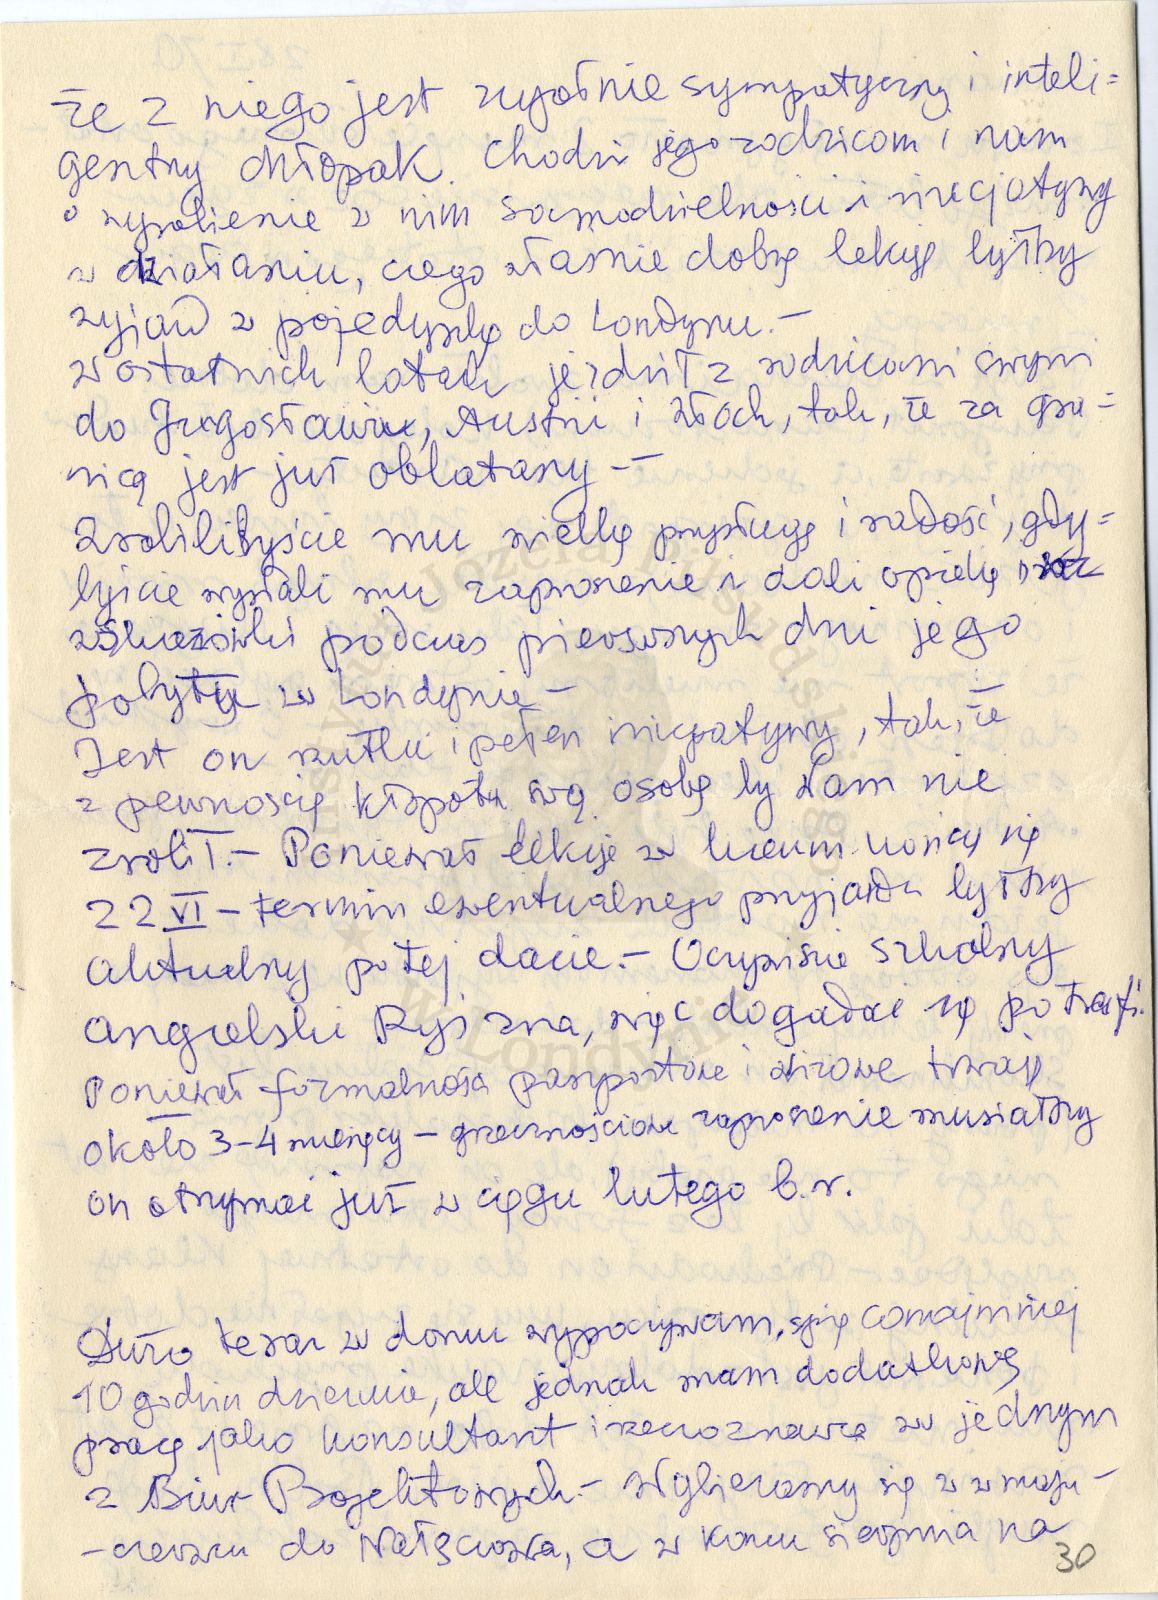 że z niego jest zupełnie sympatyczny i inteli=
gentny chłopak. Chodzi jego rodzicom i nam
o wyrobienie w nim samodzielności i inicjatywy
w działaniu, czego właśnie dobrą lekcją byłby
wyjazd w pojedynkę do Londynu.—
W ostatnich latach jeździł z rodzicami swymi
do Jugosławii, Austrii i Włoch, tak, że za gra=
nicą jest już oblatany —
Zrobilibyście mu wielką przysługę i radość, gdy=
byście wysłali mu zaproszenie i dali opiekę i
wskazówki podczas pierwszych dni jego
pobytu w Londynie —
Jest on rzutki i pełen inicjatywy, tak, że
z pewnością kłopotu swą osobą by Wam nie
zrobił.— Ponieważ lekcje w liceum kończą się
22 VI — termin ewentualnego przyjazdu byłby
aktualny po tej dacie.— Oczywiście szkolny
angielski Ryś zna, więc dogadać się potrafi.
Ponieważ formalności paszportowe i wizowe trwają
około 3-4 miesięcy — grzecznościowe zaproszenie musiałby
on otrzymać już w ciągu lutego b.r.
Dużo teraz w domu wypoczywam, śpię conajmniej
10 godzin dziennie, ale jednak mam dodatkową
pracę jako konsultant i rzeczoznawca w jednym
z Biur Projektowych.— Wybieramy się w maju—
—czerwcu do Nałęczowa, a w końcu sierpnia na
30
Instytut Józefa Piłsudskiego
w Londynie